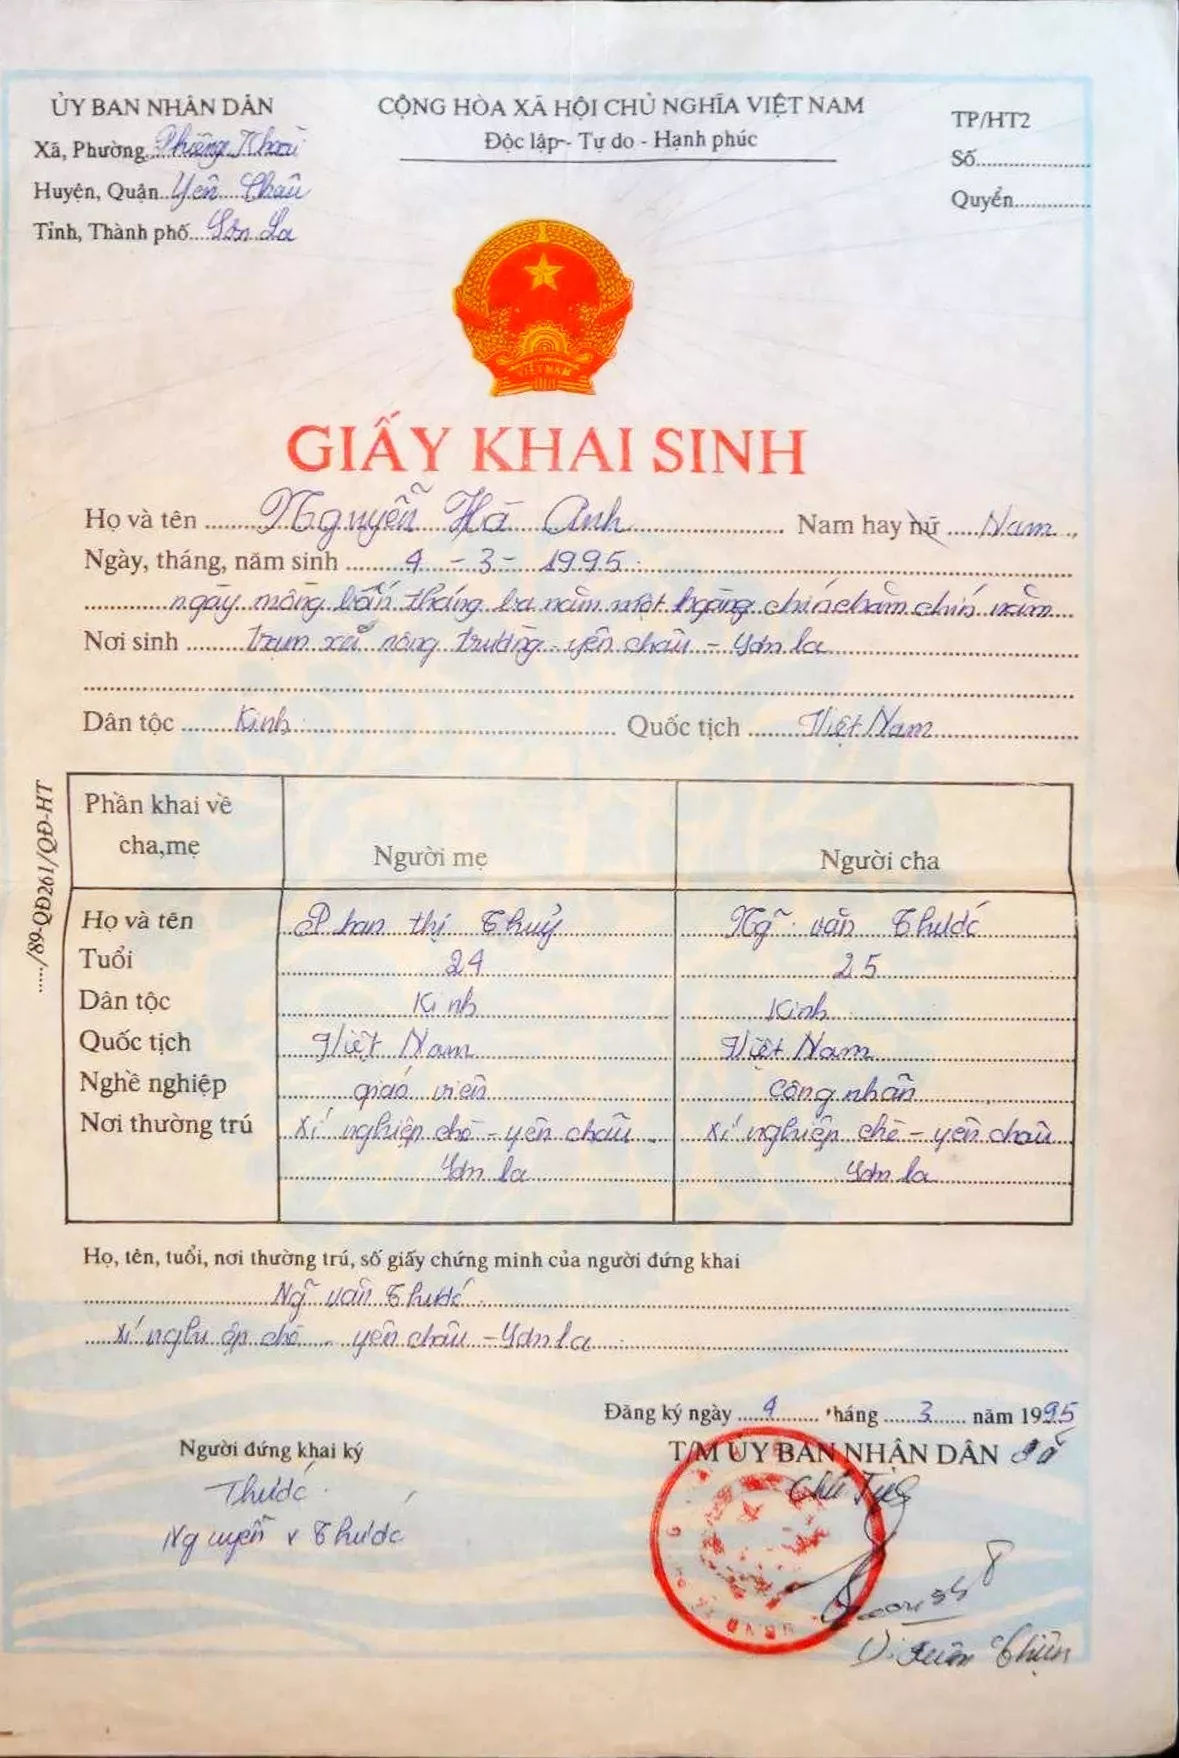 ỦY BAN NHÂN DÂN
Xã, Phường Phiêng Khoài
Huyện, Quận Yên Châu
Tỉnh, Thành phố Sơn La
CỘNG HÒA XÃ HỘI CHỦ NGHĨA VIỆT NAM
Độc lập - Tự do - Hạnh phúc
TP/HT2
Số
Quyển
VIỆT NAM
GIẤY KHAI SINH
Họ và tên Nguyễn Hà Anh Nam hay nữ Nam
Ngày, tháng, năm sinh 4 - 3 - 1995
ngày mồng bốn tháng ba năm một ngàn chín chăm chín năm
Nơi sinh trạm xá nông trường - yên châu - sơn la
Dân tộc Kinh Quốc tịch Việt Nam
Phần khai về cha,mẹ
Người mẹ
Người cha
Họ và tên Phan thị Thuỷ Ng~ văn Thước
Tuổi 24 25
Dân tộc Kinh Kinh
Quốc tịch Việt Nam Việt Nam
Nghề nghiệp giáo viên công nhân
Nơi thường trú xí nghiệp chè - yên châu xí nghiệp chè - yên châu
sơn la sơn la
...../89-QĐ261/QĐ-HT
Họ, tên, tuổi, nơi thường trú, số giấy chứng minh của người đứng khai
Ng~ văn Thước
xí nghiệp chè - yên châu - sơn la
Đăng ký ngày 4 tháng 3 năm 1995
Người đứng khai ký
T/M ỦY BAN NHÂN DÂN xã
Thước
Chủ Tịch
Nguyễn v Thước
Vì Xuân Thiện